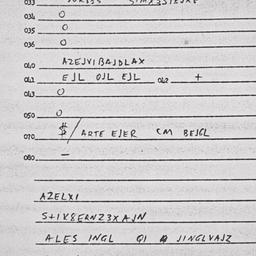 034 0
035 0
036 0
040 AZEJVIBAJDLAX
041 EJL OJL EJL 042 +
043 0
050 0
070 $/ARTE EJER CM BEJGL
080 —
AZELXI
S+1K8ERNZ3XAJN
ALES INGL QI JINGLVAJZ